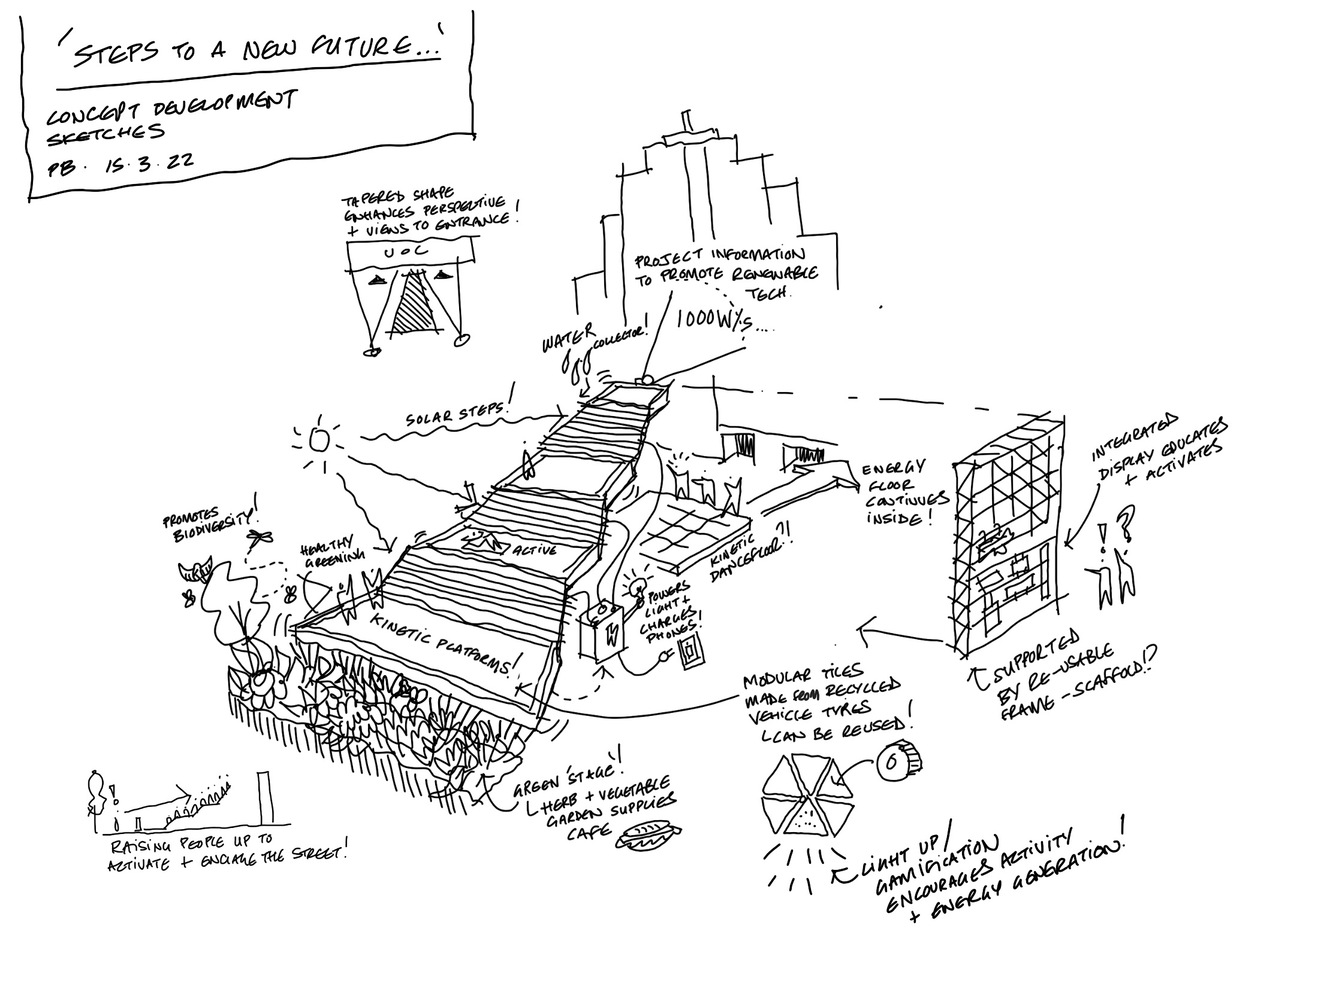 'STEPS TO A NEW FUTURE...'
CONCEPT DEVELOPMENT
SKETCHES
PB. 15.3.22
TAPERED SHAPE
ENHANCES PERSPECTIVE
+ VIEWS TO ENTRANCE!
UOC
PROJECT INFORMATION
TO PROMOTE RENEWABLE
TECH.
1000W/s...
WATER
COLLECTOR!
SOLAR STEPS!
PROMOTES
BIODIVERSITY!
HEALTHY
GREENING
ACTIVE
KINETIC PLATFORMS!
KINETIC
DANCEFLOOR?!
ENERGY
FLOOR
CONTINUES
INSIDE!
INTEGRATED
DISPLAY EDUCATES
+ ACTIVATES
! ?
POWERS
LIGHT +
CHARGES
PHONES!
SUPPORTED
BY RE-USABLE
FRAME - SCAFFOLD!?
MODULAR TILES
MADE FROM RECYCLED
VEHICLE TYRES
CAN BE REUSED!
GREEN 'STAGE'!
HERB + VEGETABLE
GARDEN SUPPLIES
CAFE
RAISING PEOPLE UP TO
ACTIVATE + ENGAGE THE STREET!
LIGHT UP/
GAMIFICATION
ENCOURAGES ACTIVITY
+ ENERGY GENERATION!